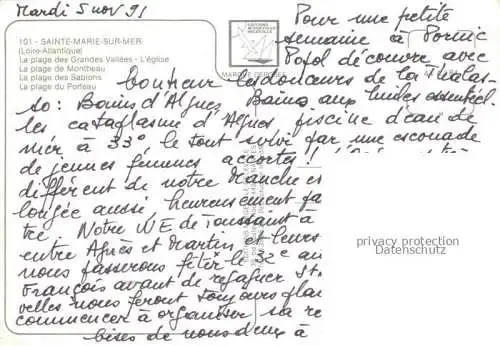 Mardi 5 nov 91
101 - SAINTE-MARIE-SUR-MER
(Loire-Atlantique)
La plage des Grandes Vallées - L'église
La plage de Montbeau
La plage des Sablons
La plage du Porteau
Pour une petite
semaine à Pornic
Popol découvre avec
bonheur les douceurs de la Thalas-
so: Bains d'Algues, Bains aux huiles essentiel
les cataplasme d'Algues piscine d'eau de
mer à 33° le tout suivi par une escouade
de jeunes femmes accortes!!
différent de notre Manche es
longée aussi, heureusement fa
tre. Notre WE de Toussaint à
entre Agnès et Martin et leurs
nous passerons fêter le 32e an
François avant de regagner St.
velles nous feront toujours plai
commencer à organiser sa re
bises de nous deux à
privacy protection
Datenschutz